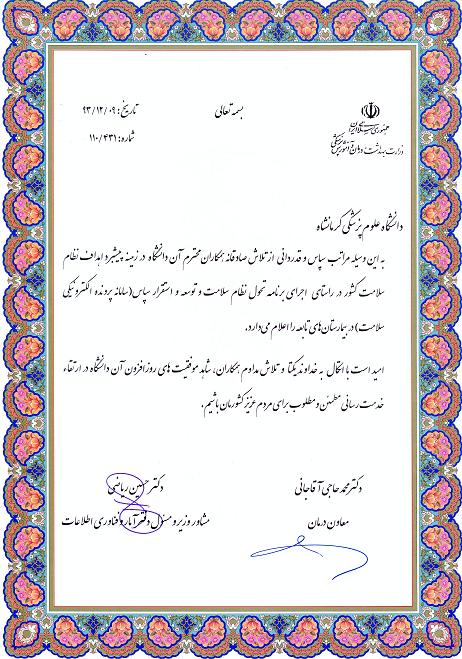 بسمه تعالی
تاریخ: ۹۳/۱۲/۰۹
شماره: ۱۱۰/۴۳۱
جمهوری اسلامی ایران
وزارت بهداشت، درمان و آموزش پزشکی
دانشگاه علوم پزشکی کرمانشاه
به این وسیله مراتب سپاس و قدردانی از تلاش صادقانه همکاران محترم آن دانشگاه در زمینه پیشبرد اهداف نظام
سلامت کشور در راستای اجرای برنامه تحول نظام سلامت و توسعه و استقرار سپاس(سامانه پرونده الکترونیکی
سلامت) در بیمارستان‌های تابعه را اعلام می‌دارد.
امید است با اتکال به خداوند یکتا و تلاش مداوم همکاران، شاهد موفقیت های روزافزون آن دانشگاه در ارتقاء
خدمت رسانی مطمئن و مطلوب برای مردم عزیز کشورمان باشیم.
دکتر محمد حاجی آقاجانی
معاون درمان
دکتر حسین ریاضی
مشاور وزیر و مسئول دفتر آمار و فناوری اطلاعات